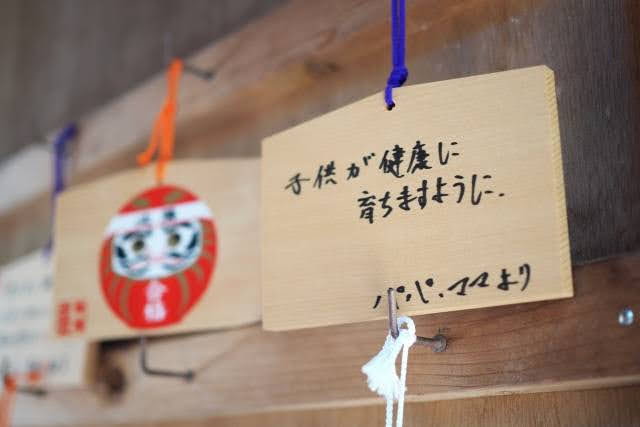 合格
子供が健康に
育ちますように.
パパ.ママより